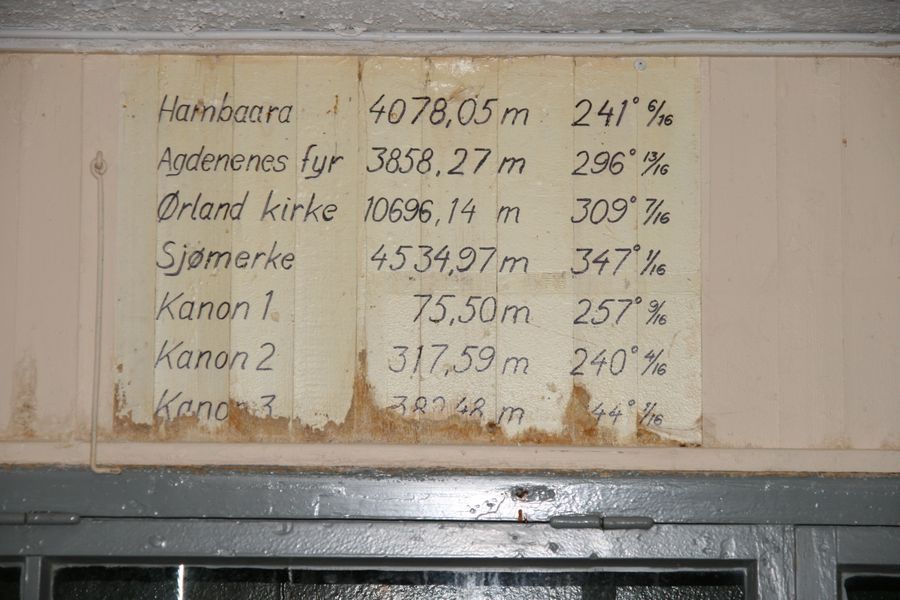 Hambaara 4078,05 m 241° 6/16
Agdenenes fyr 3858,27 m 296° 13/16
Ørland kirke 10696,14 m 309° 7/16
Sjømerke 4534,97 m 347° 1/16
Kanon 1 75,50 m 257° 9/16
Kanon 2 317,59 m 240° 4/16
Kanon 3 m